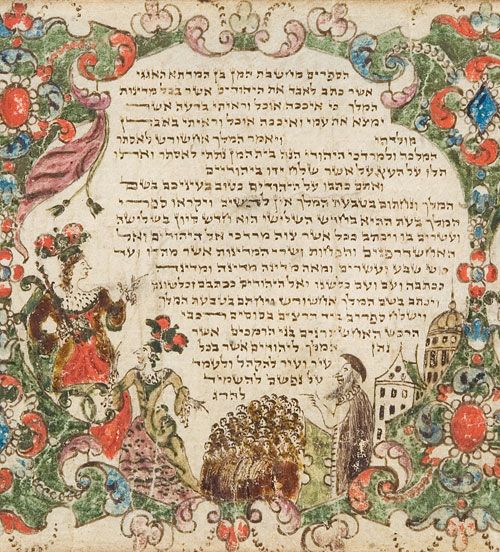 הספרים מחשבת המן בן המדתא האגגי
אשר כתב לאבד את היהודים אשר בכל מדינות
המלך כי איככה אוכל וראיתי ברעה אשר
ימצא את עמי ואיככה אוכל וראיתי באבדן
מולדתי ויאמר המלך אחשורש לאסתר
המלכה ולמרדכי היהודי הנה בית המן נתתי לאסתר ואתו
תלו על העץ על אשר שלח ידו ביהודים
ואתם כתבו על היהודים כטוב בעיניכם בשם
המלך ונחתום בטבעת המלך אין להשיב ויקראו ספרי
המלך בעת ההיא בחדש השלישי הוא חדש סיון בשלושה
ועשרים בו ויכתב ככל אשר צוה מרדכי אל היהודים ואל
האחשדרפנים והפחות ושרי המדינות אשר ועד
כוש שבע ועשרים ומאה מדינה מדינה ומדינה
ככתבה ועם ועם כלשנו ואל היהודים ככתבם וכלשונם
ויכתב בשם המלך אחשורש ויחתם בטבעת המלך
וישלח ספרים ביד הרצים בסוסים רכבי
הרכש האחשתרנים בני הרמכים אשר
נתן המלך ליהודים אשר בכל
עיר ועיר להקהל ולעמד
על נפשם להשמיד
להרג